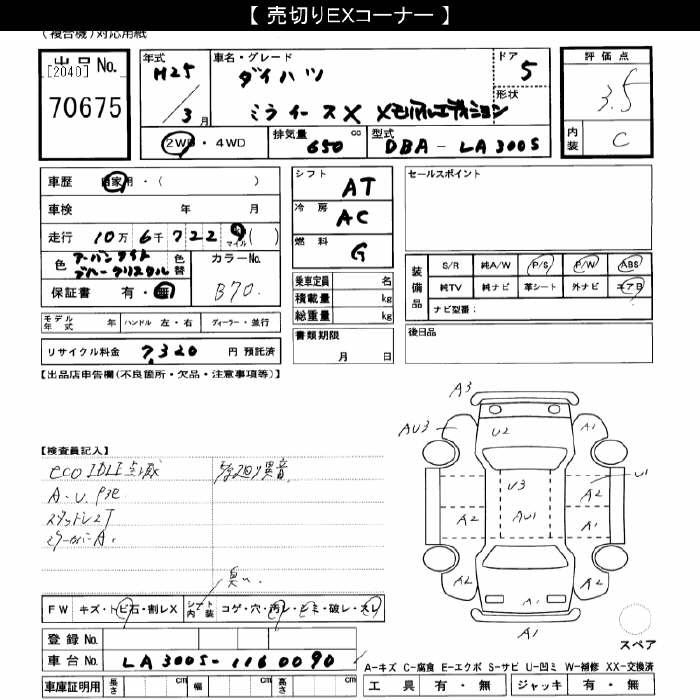 【 売切りEXコーナー 】
(複合機)対応用紙
出品 No.
[2040]
70675
年式
H25
3 月
車名・グレード
ダイハツ
ミライース X メモリアルエディション
ドア
5
形状
2WD ・ 4WD
排気量 cc
650
型式
DBA - LA300S
評価点
3.5
内装
C
車歴 自家用・( )
車検 年 月
走行 10万 6千 7 2 2 9 マイル( )
色 アーバンナイトブルークリスタル
色替
カラーNo.
B70.
保証書 有・無
モデル年式 年 ハンドル 左・右 ディーラー・並行
リサイクル料金 7,320 円 預託済
シフト
AT
冷房
AC
燃料
G
乗車定員 名
積載量 kg
総重量 kg
書類期限
月 日
セールスポイント
装備品
S/R 純A/W P/S P/W ABS
純TV 純ナビ 革シート 外ナビ エアB
ナビ型番:
後日品
【出品店申告欄(不良箇所・欠品・注意事項等)】
【検査員記入】
eco IDLE点滅
異音
A・U
臭い
A3
AU3
U2
A1
U3
AU1
A2
U1
A2
A1
A2
A2
A1
A1
スペア
FW キズ・トビ石・割レX
シート内装 コゲ・穴・汚レ・シミ・破レ・スレ
登録 No.
車台 No. LA300S-1160090
車庫証明用 長さ cm 幅 cm 高さ cm
A-キズ C-腐食 E-エクボ S-サビ U-凹ミ W-補修 XX-交換済
工具 有・無 ジャッキ 有・無